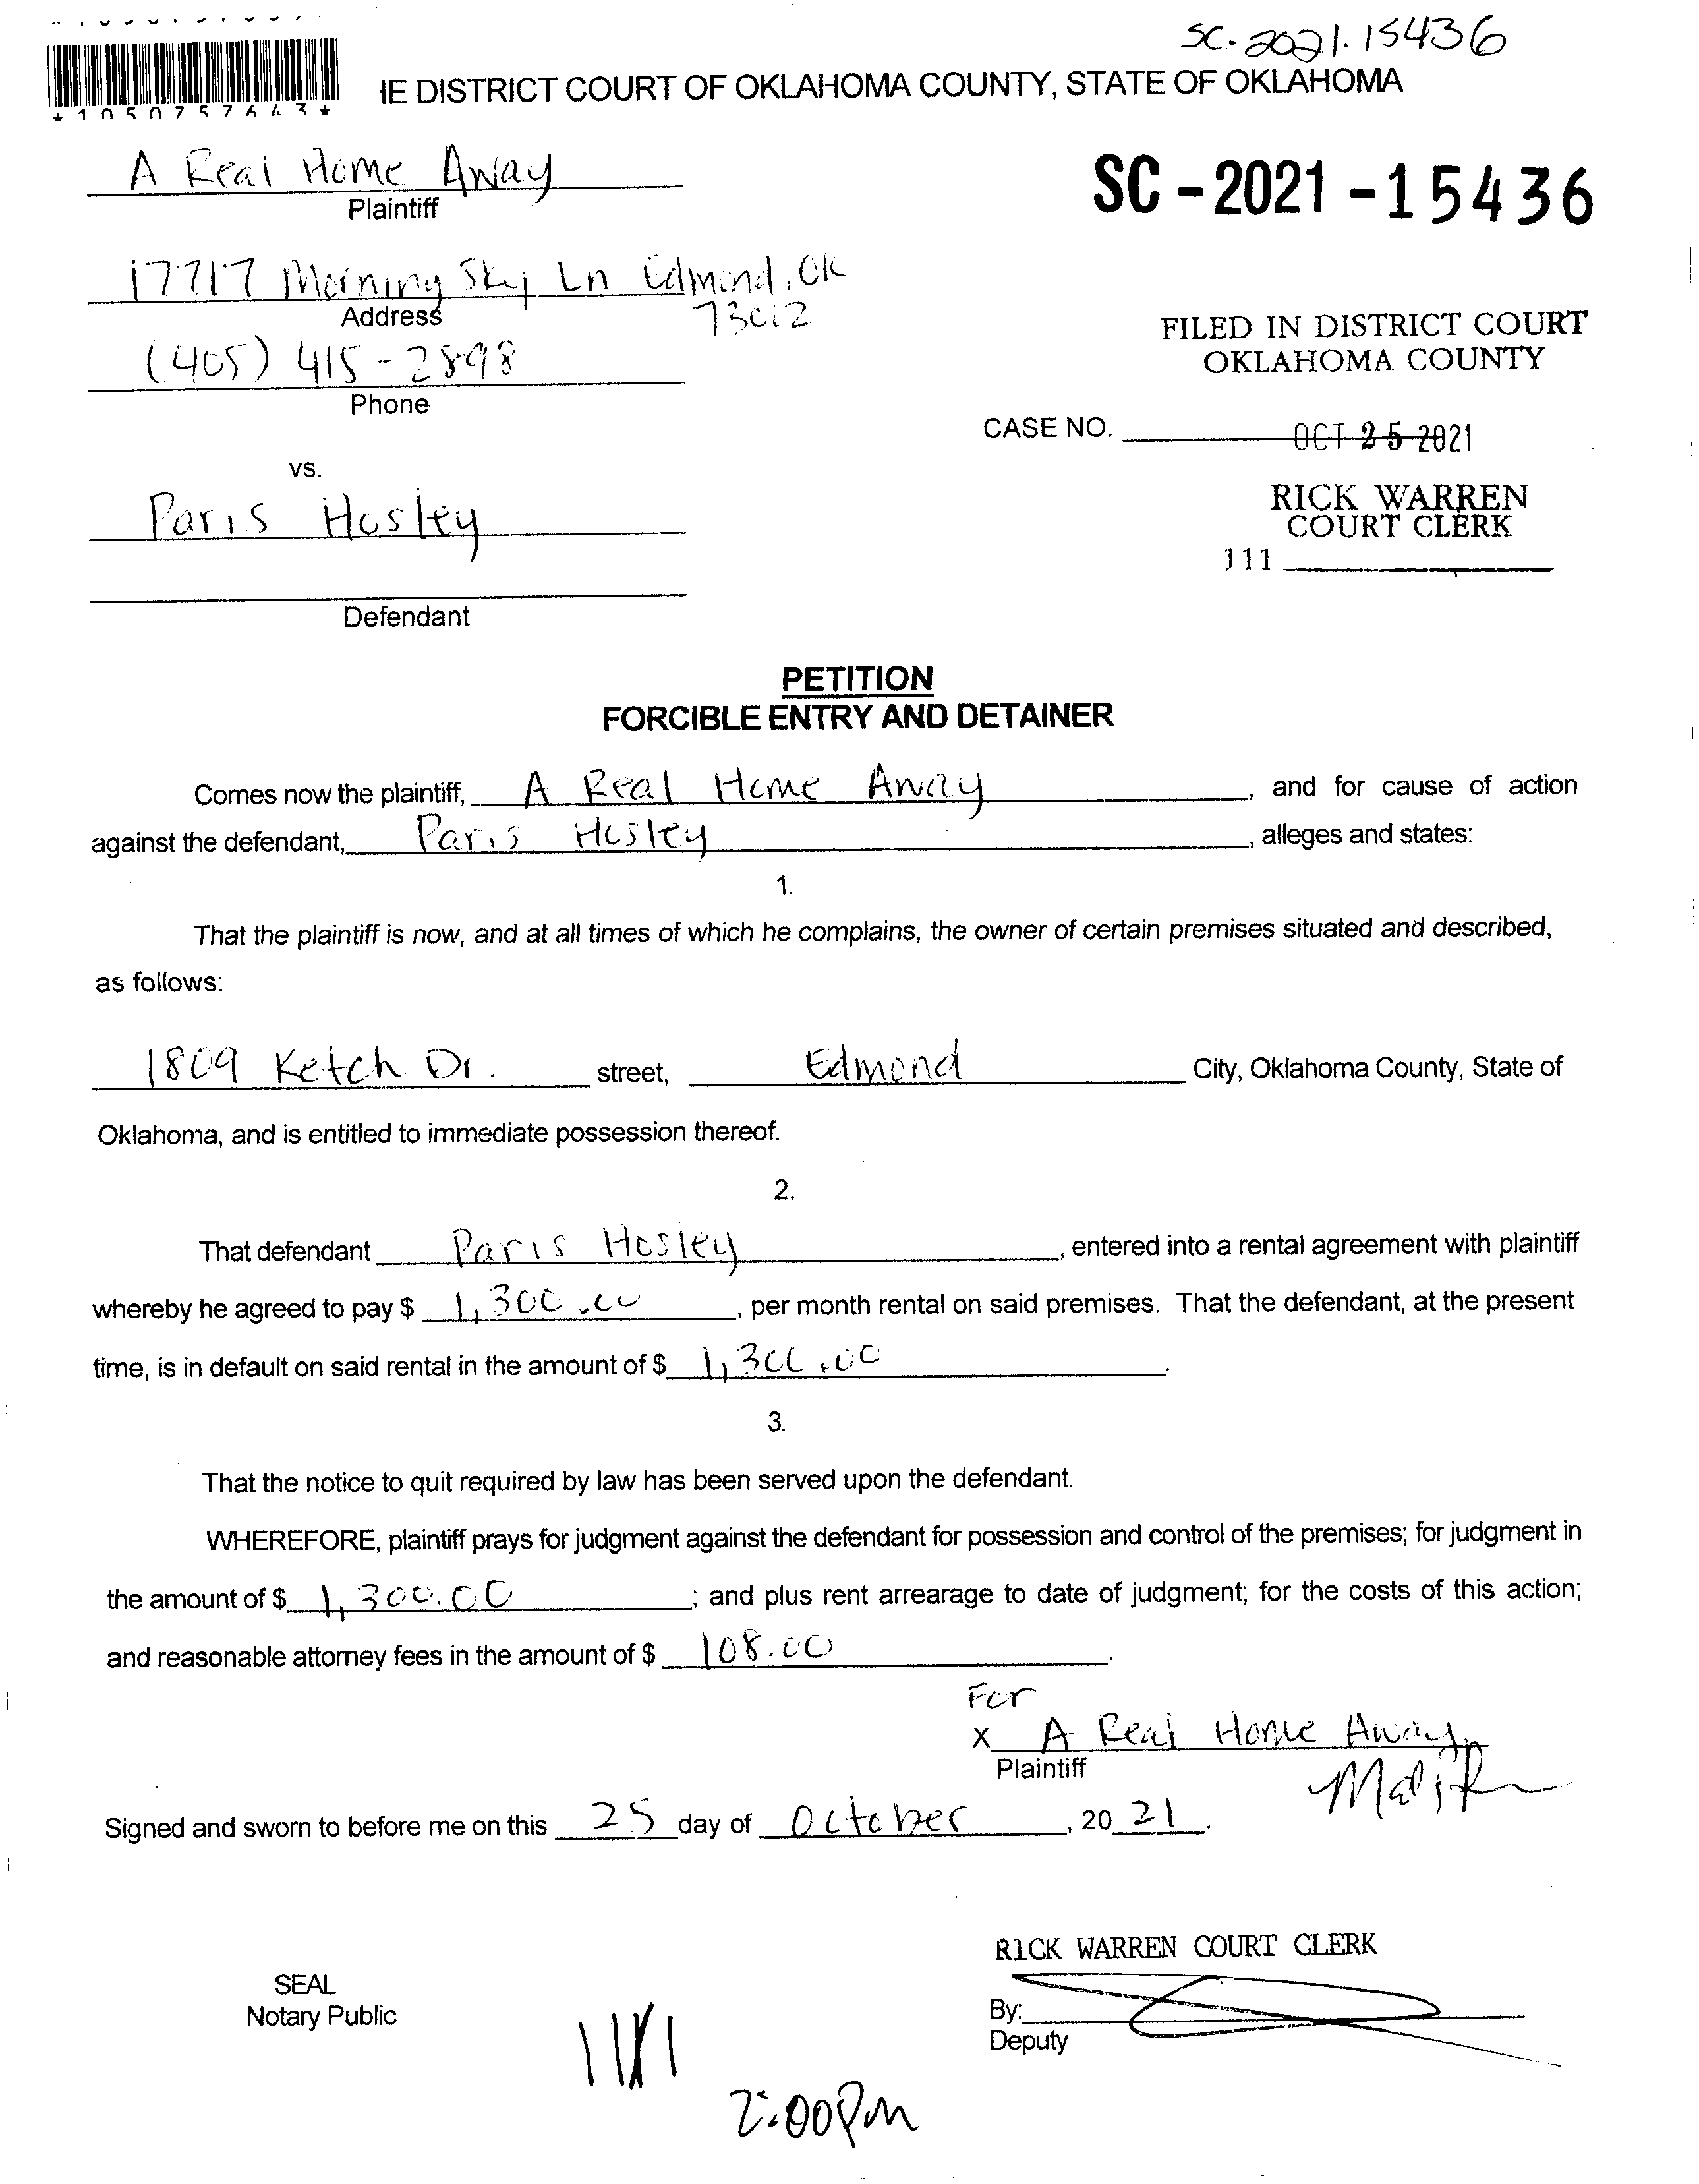 SC-2021-15436
IE DISTRICT COURT OF OKLAHOMA COUNTY, STATE OF OKLAHOMA
*1050757643*
A Real Home Away
Plaintiff
SC-2021-15436
17717 Morning Sky Ln Edmond, OK
73012
Address
FILED IN DISTRICT COURT
OKLAHOMA COUNTY
(405) 415-2898
Phone
CASE NO.
OCT 25 2021
vs.
RICK WARREN
COURT CLERK
Paris Hosley
111
Defendant
PETITION
FORCIBLE ENTRY AND DETAINER
Comes now the plaintiff, A Real Home Away, and for cause of action
against the defendant, Paris Hosley, alleges and states:
1.
That the plaintiff is now, and at all times of which he complains, the owner of certain premises situated and described,
as follows:
1809 Ketch Dr. street, Edmond City, Oklahoma County, State of
Oklahoma, and is entitled to immediate possession thereof.
2.
That defendant Paris Hosley, entered into a rental agreement with plaintiff
whereby he agreed to pay $ 1,300.00, per month rental on said premises. That the defendant, at the present
time, is in default on said rental in the amount of $ 1,300.00.
3.
That the notice to quit required by law has been served upon the defendant.
WHEREFORE, plaintiff prays for judgment against the defendant for possession and control of the premises; for judgment in
the amount of $ 1,300.00; and plus rent arrearage to date of judgment; for the costs of this action;
and reasonable attorney fees in the amount of $ 108.00.
For
X A Real Home Away
Plaintiff
Signed and sworn to before me on this 25 day of October, 20 21.
RICK WARREN COURT CLERK
SEAL
Notary Public
By:
Deputy
2:00Pm